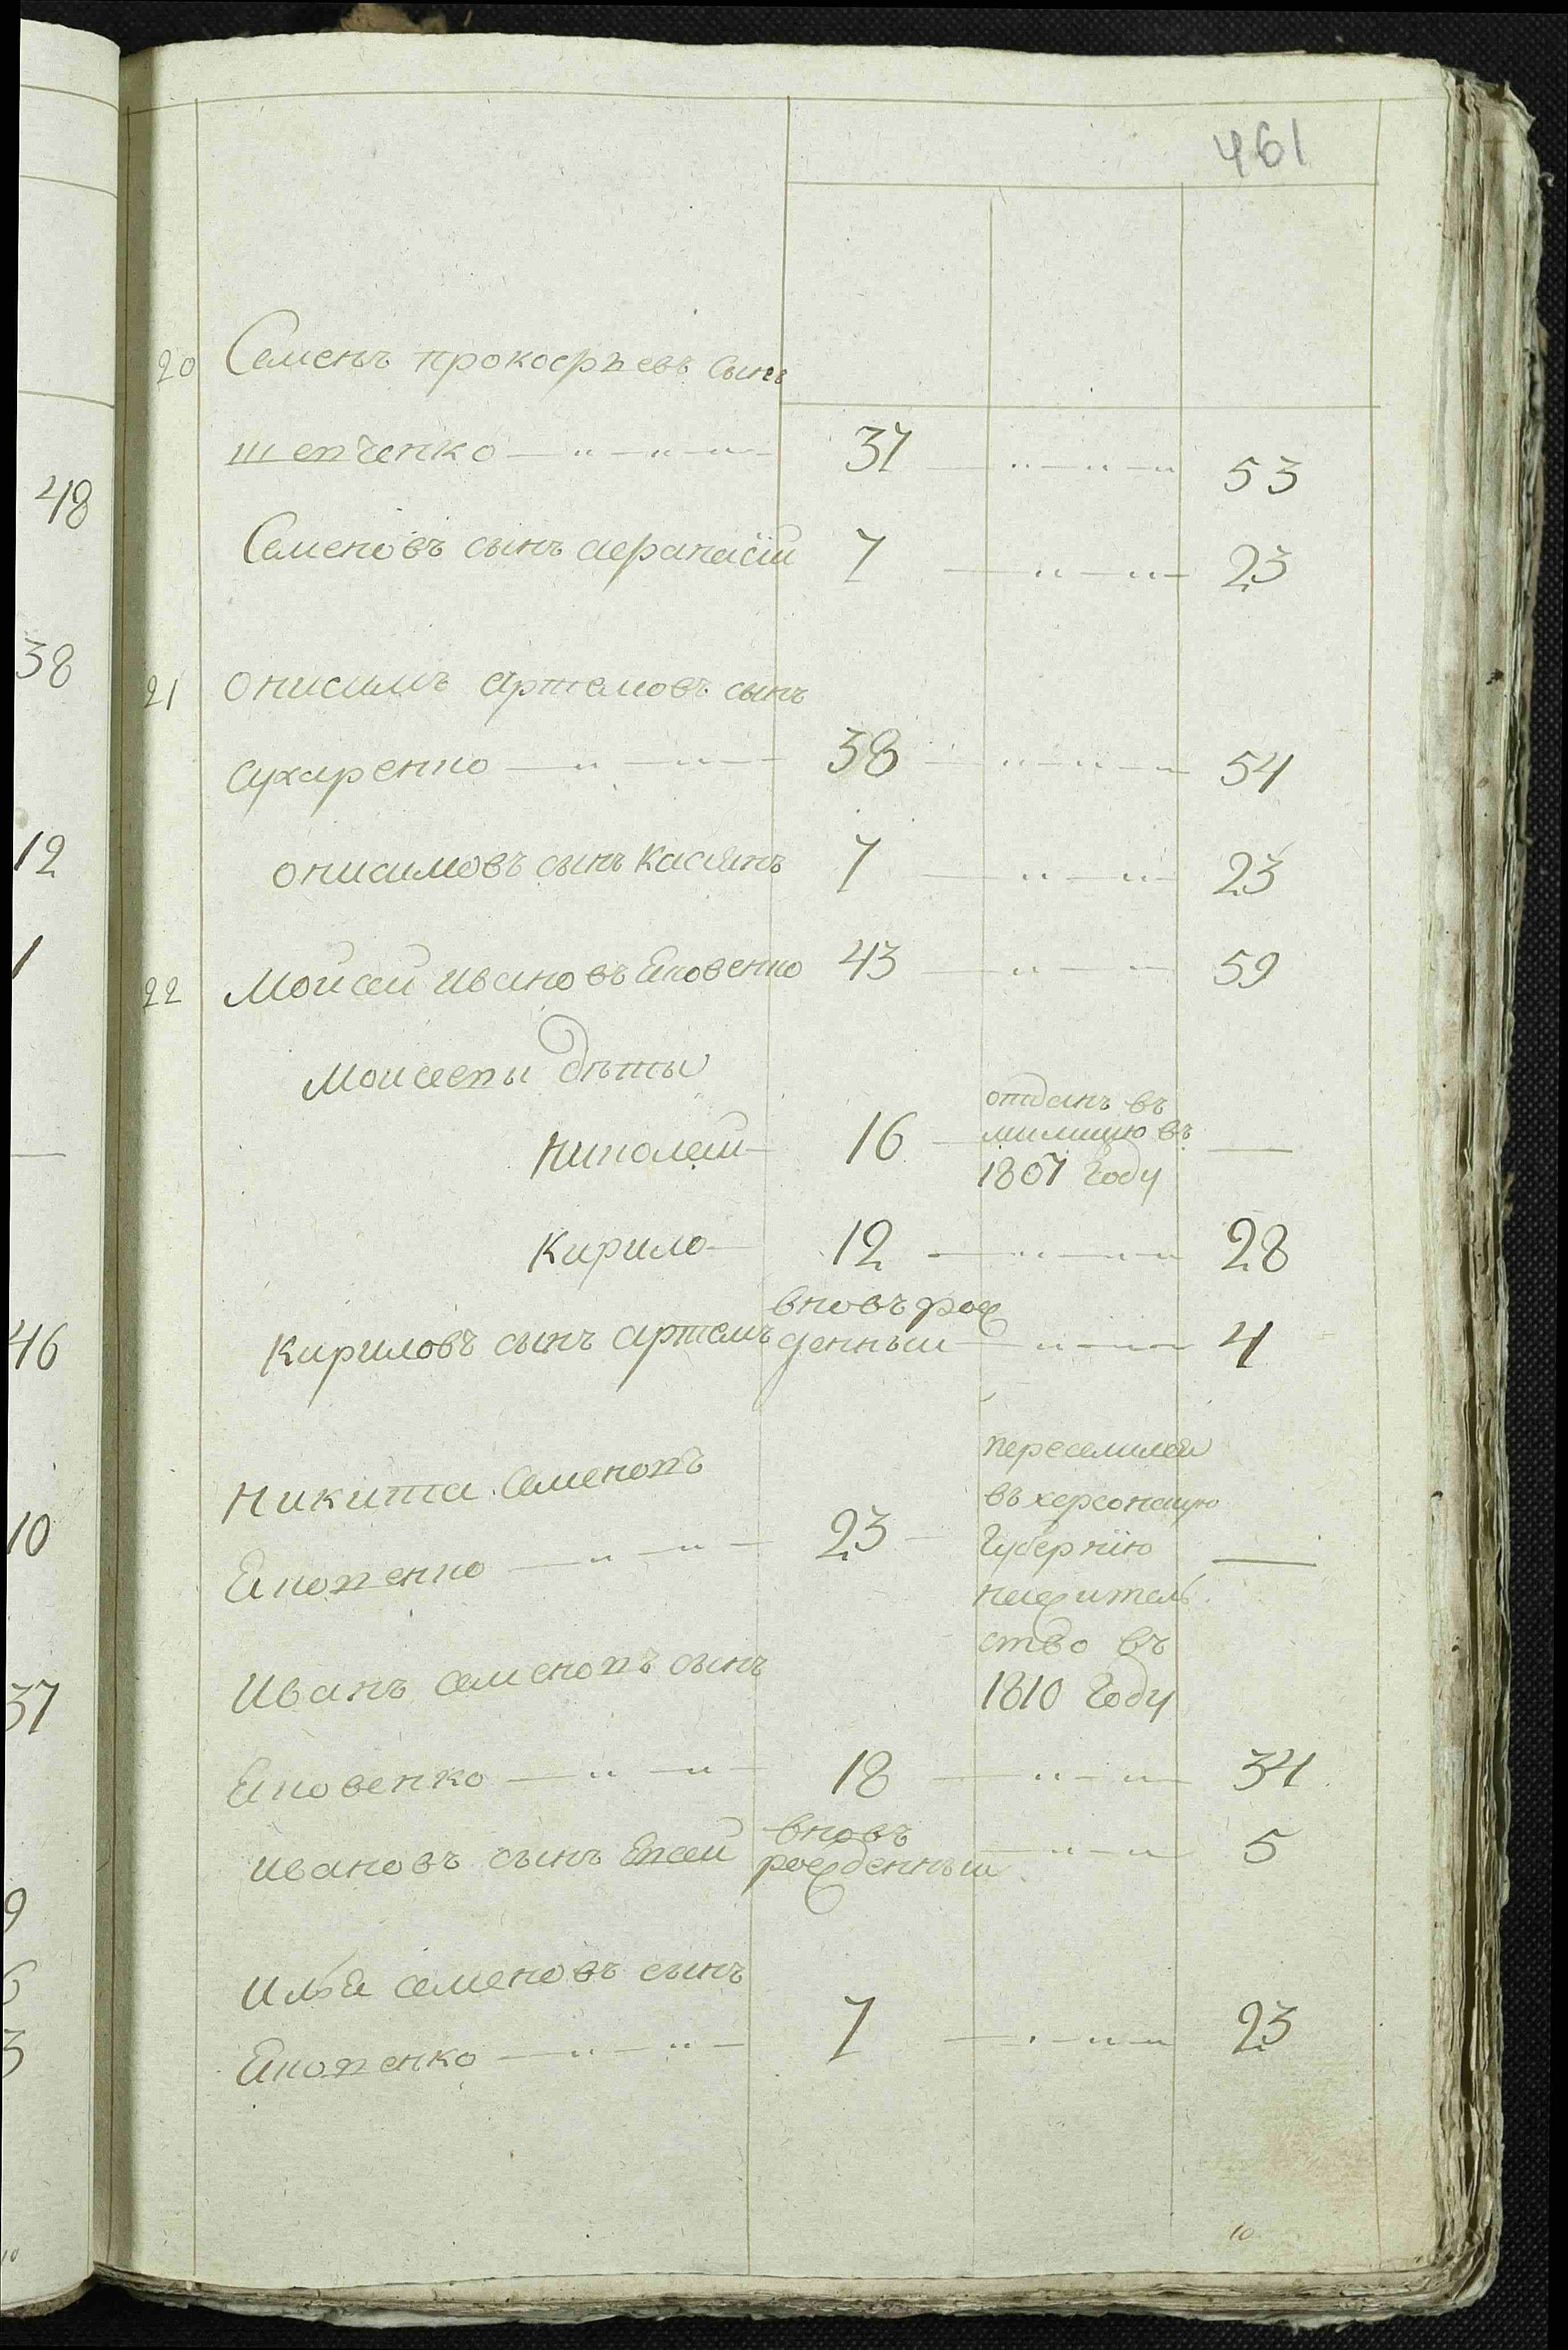 461
20 Семенъ прокофьевъ сынъ
шевченко 37 53
Семеновъ сынъ афанасій 7 23
21 онисимъ артемовъ сынъ
сухаренко 38 54
онисимовъ сынъ касянъ 7 23
22 Моисей ивановъ Яковенко 43 59
Моисеевы дѣти
Николай 16 отданъ въ
милицию въ
1807 Году
Кирило 12 28
Кириловъ сынъ артемъ вновь рож
денный 4
Никита Семеновъ
Яковенко 23 переселился
въ херсонскую
Губернію
на жител
ство въ
1810 Году
Иванъ семеновъ сынъ
Яковенко 18 34
ивановъ сынъ вновь
рожденный 5
Илья семеновъ сынъ
Яковенко 7 23
10
48
38
12
1
46
10
37
9
6
3
10